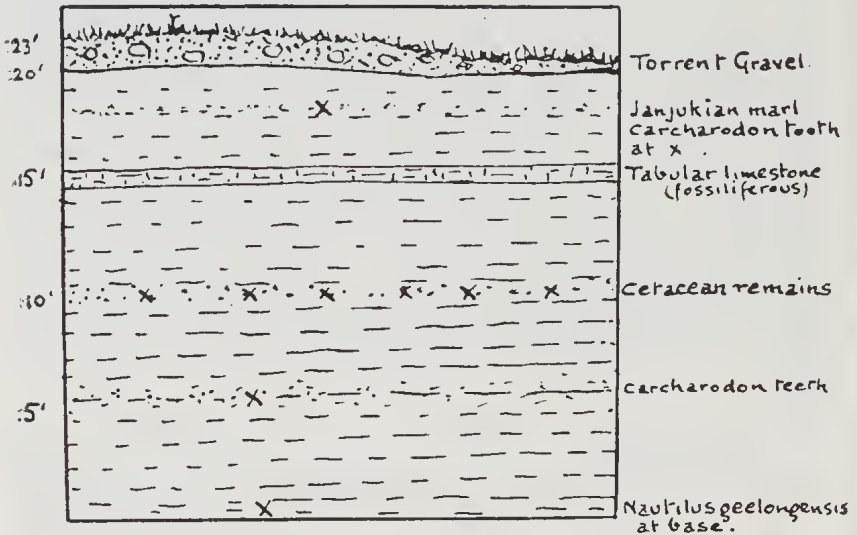 23'
20'
Torrent Gravel.
Janjukian marl
Carcharodon tooth
at x.
15'
Tabular limestone
(fossiliferous)
10'
Cetacean remains
Carcharodon teeth
5'
Nautilus geelongensis
at base.